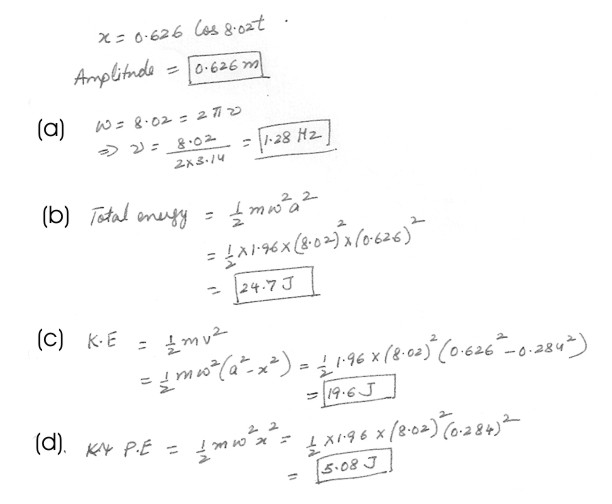 x = 0.626 Cos 8.02t .
Amplitude = 0.626 m
(a) ω = 8.02 = 2πν
⇒ ν = 8.02 / 2×3.14 = 1.28 Hz
(b) Total energy = 1/2 mω²a²
= 1/2 ×1.96×(8.02)²×(0.626)²
= 24.7 J
(c) K.E = 1/2 mv²
= 1/2 mω²(a²-x²) = 1/2 1.96×(8.02)²(0.626²-0.284²)
= 19.6 J
(d). P.E = 1/2 mω²x² = 1/2 ×1.96×(8.02)²(0.284)²
= 5.08 J